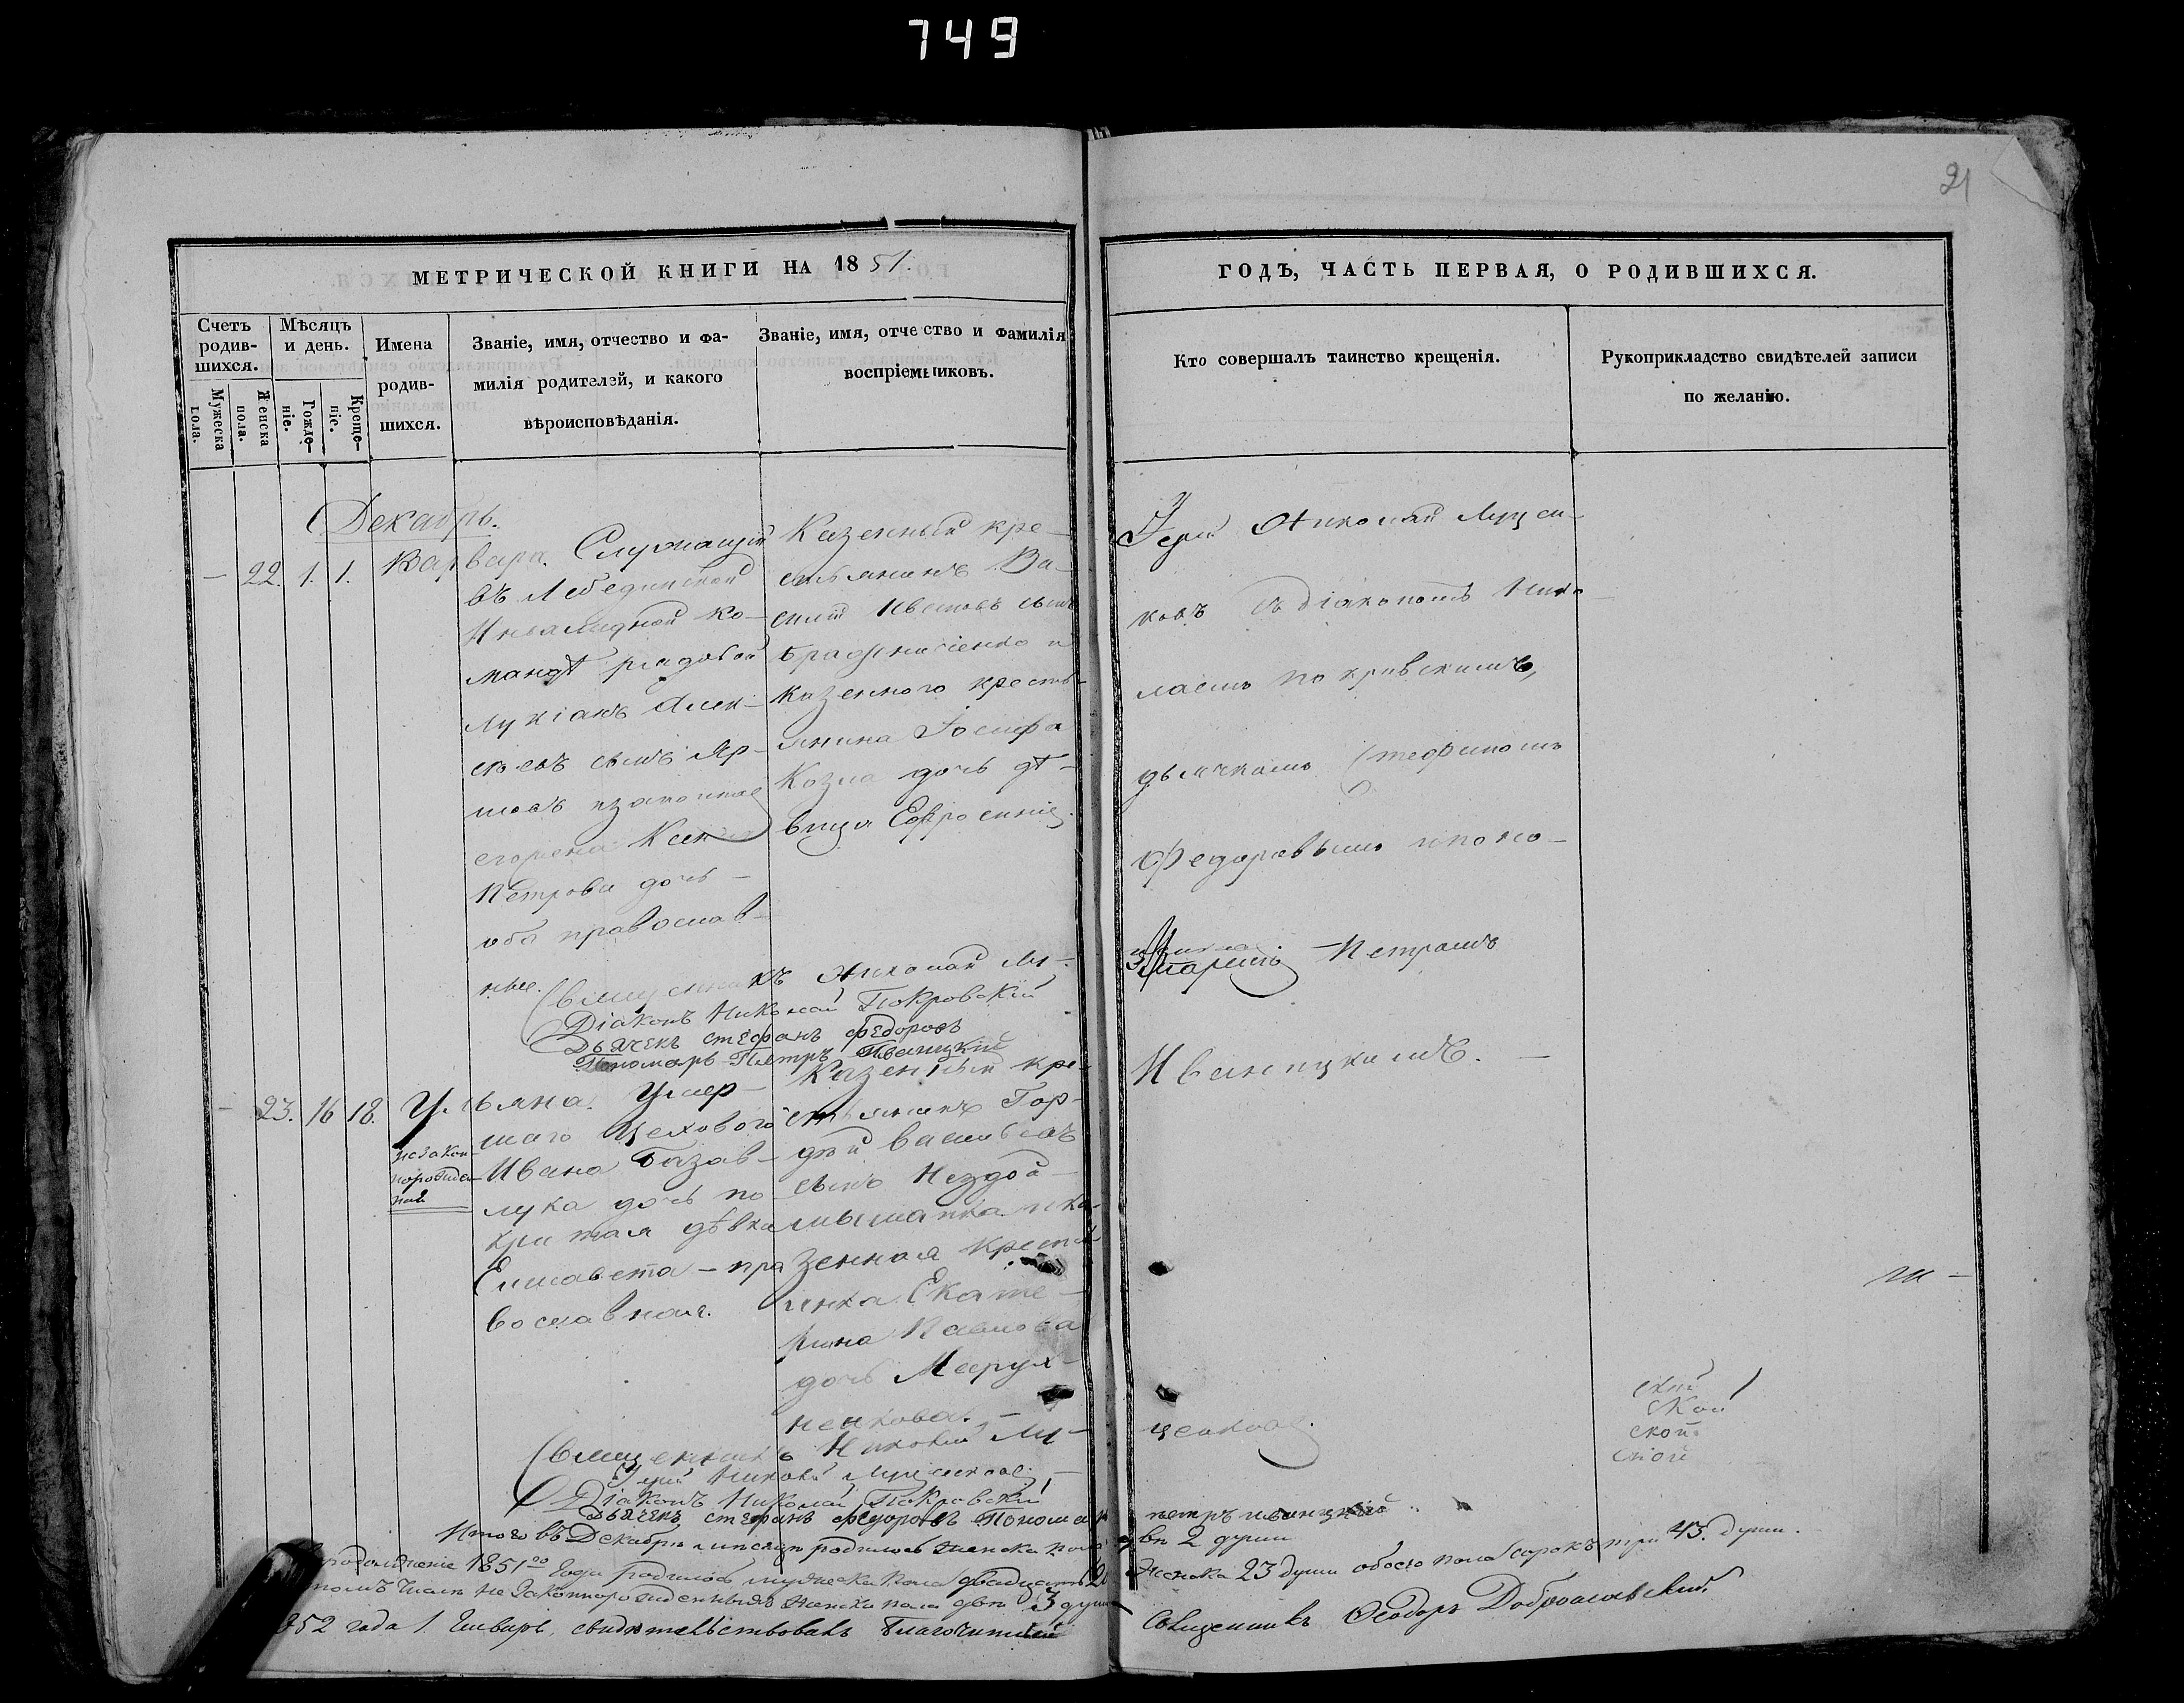 749
21
МЕТРИЧЕСКОЙ КНИГИ НА 1851.
ГОДЪ, ЧАСТЬ ПЕРВАЯ, О РОДИВШИХСЯ.
Счетъ родив-шихся.
Мужеска пола.
Женска пола.
Мѣсяцъ и день.
Рожде-ніе.
Креще-ніе.
Имена
родив-
шихся.
Званіе, имя, отчество и фа-
милія родителей, и какого
вѣроисповѣданія.
Званіе, имя, отчество и фамилія
воспріемниковъ.
Кто совершалъ таинство крещенія.
Рукоприкладство свидѣтелей записи
по желанію.
Декабрь.
— 22. 1. 1. Варвара.
Служащій
въ Лебединской
Инвалидной ко-
мандѣ рядовой
Лукіанъ Алек-
сѣевъ сынъ
изаконная
его жена
Петрова дочь —
оба православ-
ные.
Казенный кре-
стьянинъ Ва-
силій Ивановъ сынъ
и
казенного кресть-
янина Іосифа
Козла дочь дѣ-
вица Ефросинія.
Іерей Николай Луцен-
ковъ съ діакономъ Нико-
лаемъ Покровскимъ,
дьячкомъ Стефаномъ
Федоровымъ и поно-
маремъ Петромъ
Иваницкимъ. —
Священникъ Николай Лу-
Діаконъ Николай Покровскій
Дьячекъ Стефанъ Федоровъ
Пономарь Петръ Иваницкій
— 23. 16 18. Ульяна.
незакон-
норожден-
ная
Умер-
шаго Цеховаго
Ивана Базав-
лука дочь по-
критая дѣвка
Елисавета — пра
вославная.
Казенный кре-
стьянинъ Гор-
дѣй Васильевъ
сынъ Нездой-
и ка-
зенная кресть
янка Екате-
рина Павлова
дочь
ненкова. —
Священникъ Николай Лу-
ценковъ.
Іерей Николай Луценковъ
Діаконъ Николай Покровскій
Дьячекъ Стефанъ Федоровъ Понома
петръ иваницкій
Итого въ Декабрѣ мѣсяцѣ родилось женска пола
двѣ 2 души
1851го года родилось мужеска пола двадцать 20
женска 23 души обоего пола сорокъ три 43. души.
томъ числѣ незаконнорожденныхъ женска пола 3 души
852 года 1 Генваря, свидѣтельствовалъ Благочинный
Священникъ Ѳеодоръ Доброславскій
ской
ской